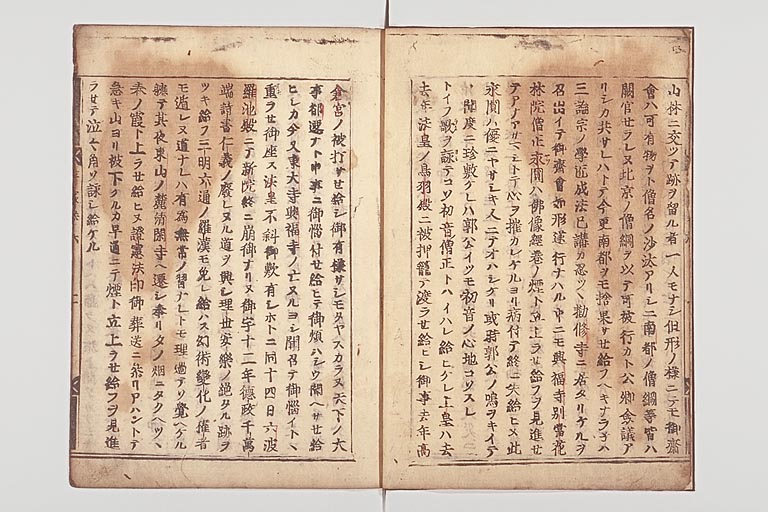 山林ニ交ツテ跡ヲ留ル者一人モナシ但形ノ様ニテモ御齋
會ハ可有物ヲト僧名ノ沙汰アリシニ南都ノ僧綱等皆ハ
闕官セラレヌ北京ノ僧綱ヲ以テ可被行カト公卿僉議ア
リシカ共サレハトテ今更南都ヲモ捨果サセ給フヘキナラ子ハ
三論宗ノ學匠成法已講カ忍ツヽ勧修寺ニ居タリケルヲ
召出イテ御齋會如形遂行ナハル中ニモ興福寺別當花
林院僧正永圓ハ佛像經卷ノ煙ト立上ラせ給フヲ見進セ
テアノアサマシトテ心ヲ摧カレケルヨリ病付テ終ニ失給ヒヌ此
永圓ハ優ニヤサシキ人ニテオハシケリ或時郭公ノ鳴ヲキイテ
聞度ニ珍敷ケレハ郭公イツモ初音ノ心地コソスレ
トイフ歌ヲ詠テコソ初音僧正トハイハレ給ヒケレ上皇ハ去
去年法皇ノ鳥羽殿ニ被押籠テ渡ラせ給ヒシ御事去年高
倉宮ノ被打サせ給シ御有様サシモタヤスカラヌ天下ノ大
事都遷ナト申事ニ御惱付せ給ヒテ御煩ハシウ聞ヘサせ給
ヒシカ今又東大寺興福寺ノ亡ヌルヨシ聞召テ御惱イトヽ
重ラせ御座ス法皇不斜御歎有シホトニ同十四日六波
羅池殿ニテ新院終ニ崩御ナリヌ御宇十二年德政千萬
端詩書仁義ノ廢レヌル道ヲ興シ理世安樂ノ絶タル跡ヲ
ツキ給フ三明六通ノ羅漢モ免レ給ハス幻術變化ノ權者
モ遁レヌ道ナレハ有為無常ノ習ナレトモ理過テソ覺ヘケル
軈テ其夜東山ノ麓清閑寺ヘ遷シ奉リタノ烟ニタクヘツヽ
春ノ霞ト上ラせ給ヒヌ澄憲法印御葬送ニ參リアハントテ
急キ山ヨリ被下ケルカ早過ニテ煙ト立上ラせ給フヲ見進
ラせテ泣々角ソ詠シ給ケル